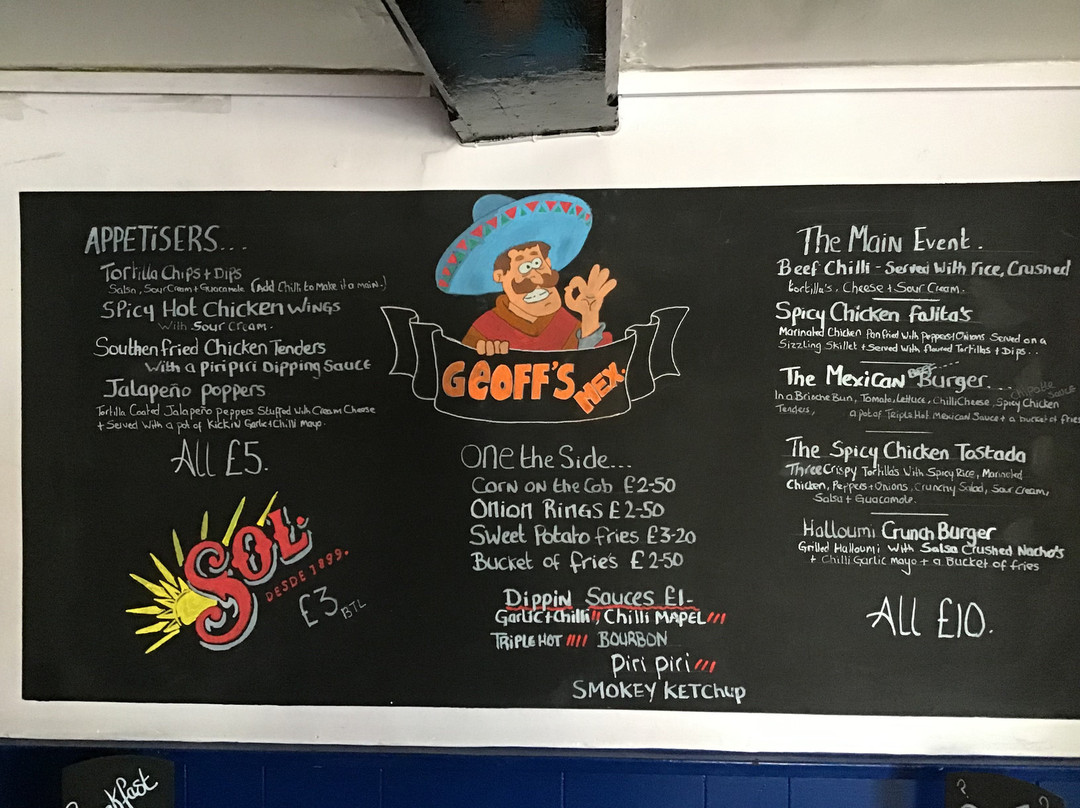 APPETISERS...
Tortilla Chips + Dips
Salsa, Sour Cream + Guacamole (Add Chilli to Make it a main.)
SPicy Hot Chicken Wings
With Sour Cream.
Southen fried Chicken Tenders
With a piri piri Dipping Sauce
Jalapeño poppers
Tortilla Coated Jalapeño peppers Stuffed With Cream Cheese
+ Served With a pot of Kickin Garlic + Chilli Mayo.
All £5.
SOL.
DESDE 1899.
£3 BTL
GEOFF'S MEX.
One the Side...
Corn on the Cob £2-50
Onion Rings £2-50
Sweet Potato fries £3-20
Bucket of frie's £2-50
Dippin Sauces £1-
Garlic + Chilli, Chilli MAPEL
TRIPLE HOT BOURBON
Piri piri
SMOKEY KETCHUP
The Main Event.
Beef Chilli - Served With rice, Crushed
tortilla's, Cheese + Sour Cream.
Spicy Chicken fajita's
Marinated Chicken Panfried With Peppers + Onions Served on a
Sizzling Skillet + Served With floured Tortillas + Dips..
The Mexican BEEF Burger...
In a Brioche Bun, Tomato, Lettuce, Chilli Cheese, Spicy Chicken
Chipotle Sauce
Tenders, a pot of Triple Hot Mexican Sauce + a bucket of fries
The Spicy Chicken Tostada
Three Crispy Tortilla's With Spicy Rice, Marinated
Chicken, Peppers + Onions, Crunchy Salad, Sour Cream,
Salsa + Guacamole.
Halloumi Crunch Burger
Grilled Halloumi With Salsa Crushed Nacho's
+ Chilli Garlic mayo + a Bucket of fries
All £10.